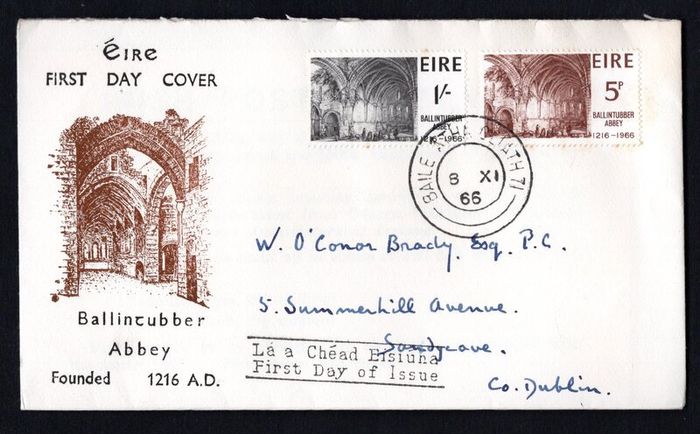 Éire
FIRST DAY COVER
Ballintubber
Abbey
Founded 1216 A.D.
EIRE
1/-
BALLINTUBBER
ABBEY
1216-1966
EIRE
5P
BALLINTUBBER
ABBEY
1216-1966
BAILE ÁTHA CLIATH 71
8 XI
66
W. O'Conor Brady, Esq. P.C.
5. Summerhill Avenue.
Sandycove.
Co. Dublin.
Lá a Chéad Eisiúna
First Day of Issue